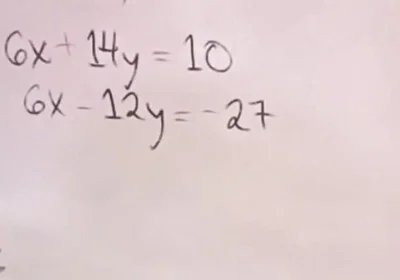 6x + 14y = 10
6x - 12y = -27